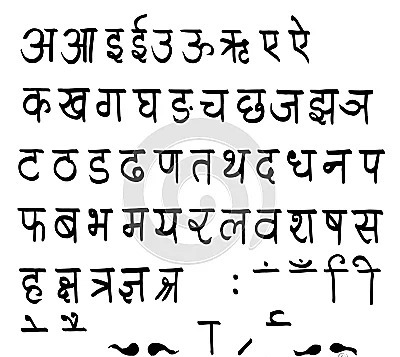 अ आ इ ई उ ऊ ऋ ए ऐ
क ख ग घ ङ च छ ज झ ञ
ट ठ ड ढ ण त थ द ध न प
फ ब भ म य र ल व श ष स
ह क्ष त्र ज्ञ श्र : ं ँ ि ी
े ै